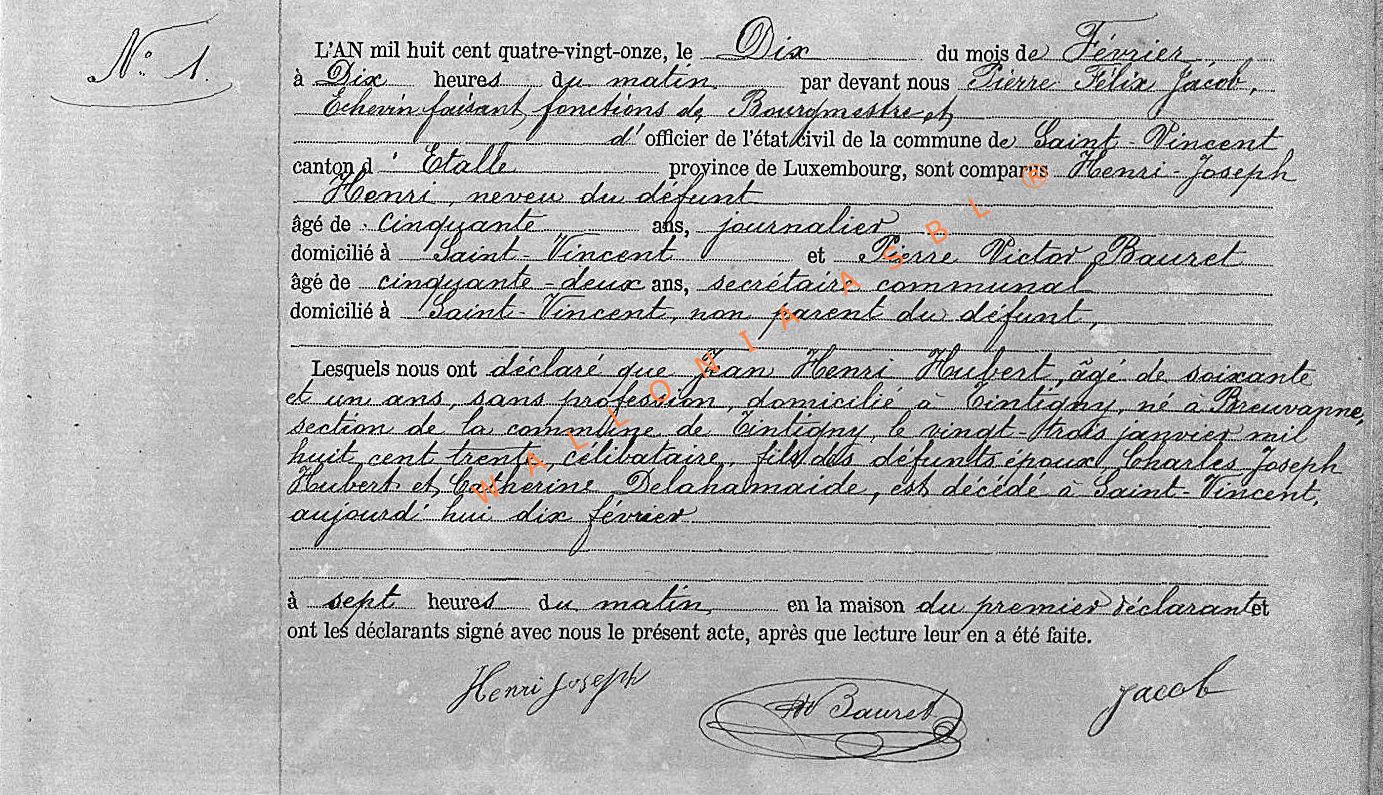 N° 1.
L'AN mil huit cent quatre-vingt-onze, le Dix du mois de Février
à Dix heures du matin par devant nous Pierre Félix Jacob,
Echevin faisant fonctions de Bourgmestre et
d' officier de l'état civil de la commune de Saint-Vincent
canton d' Etalle province de Luxembourg, sont comparus Henri-Joseph
Henri, neveu du défunt
âgé de cinquante ans, journalier
domicilié à Saint-Vincent et Pierre Victor Bauret
âgé de cinquante-deux ans, secrétaire communal
domicilié à Saint-Vincent, non parent du défunt,
Lesquels nous ont déclaré que Jean Henri Hubert, âgé de soixante
et un ans, sans profession, domicilié à Tintigny, né à Breuvanne,
section de la commune de Tintigny, le vingt-trois janvier mil
huit cent trente, célibataire, fils des défunts époux Charles Joseph
Hubert et Catherine Delahamaide, est décédé à Saint-Vincent,
aujourd'hui dix février
à sept heures du matin, en la maison du premier déclarant et
ont les déclarants signé avec nous le présent acte, après que lecture leur en a été faite.
Henri Joseph
Bauret
Jacob
WALLONIA ASBL ®